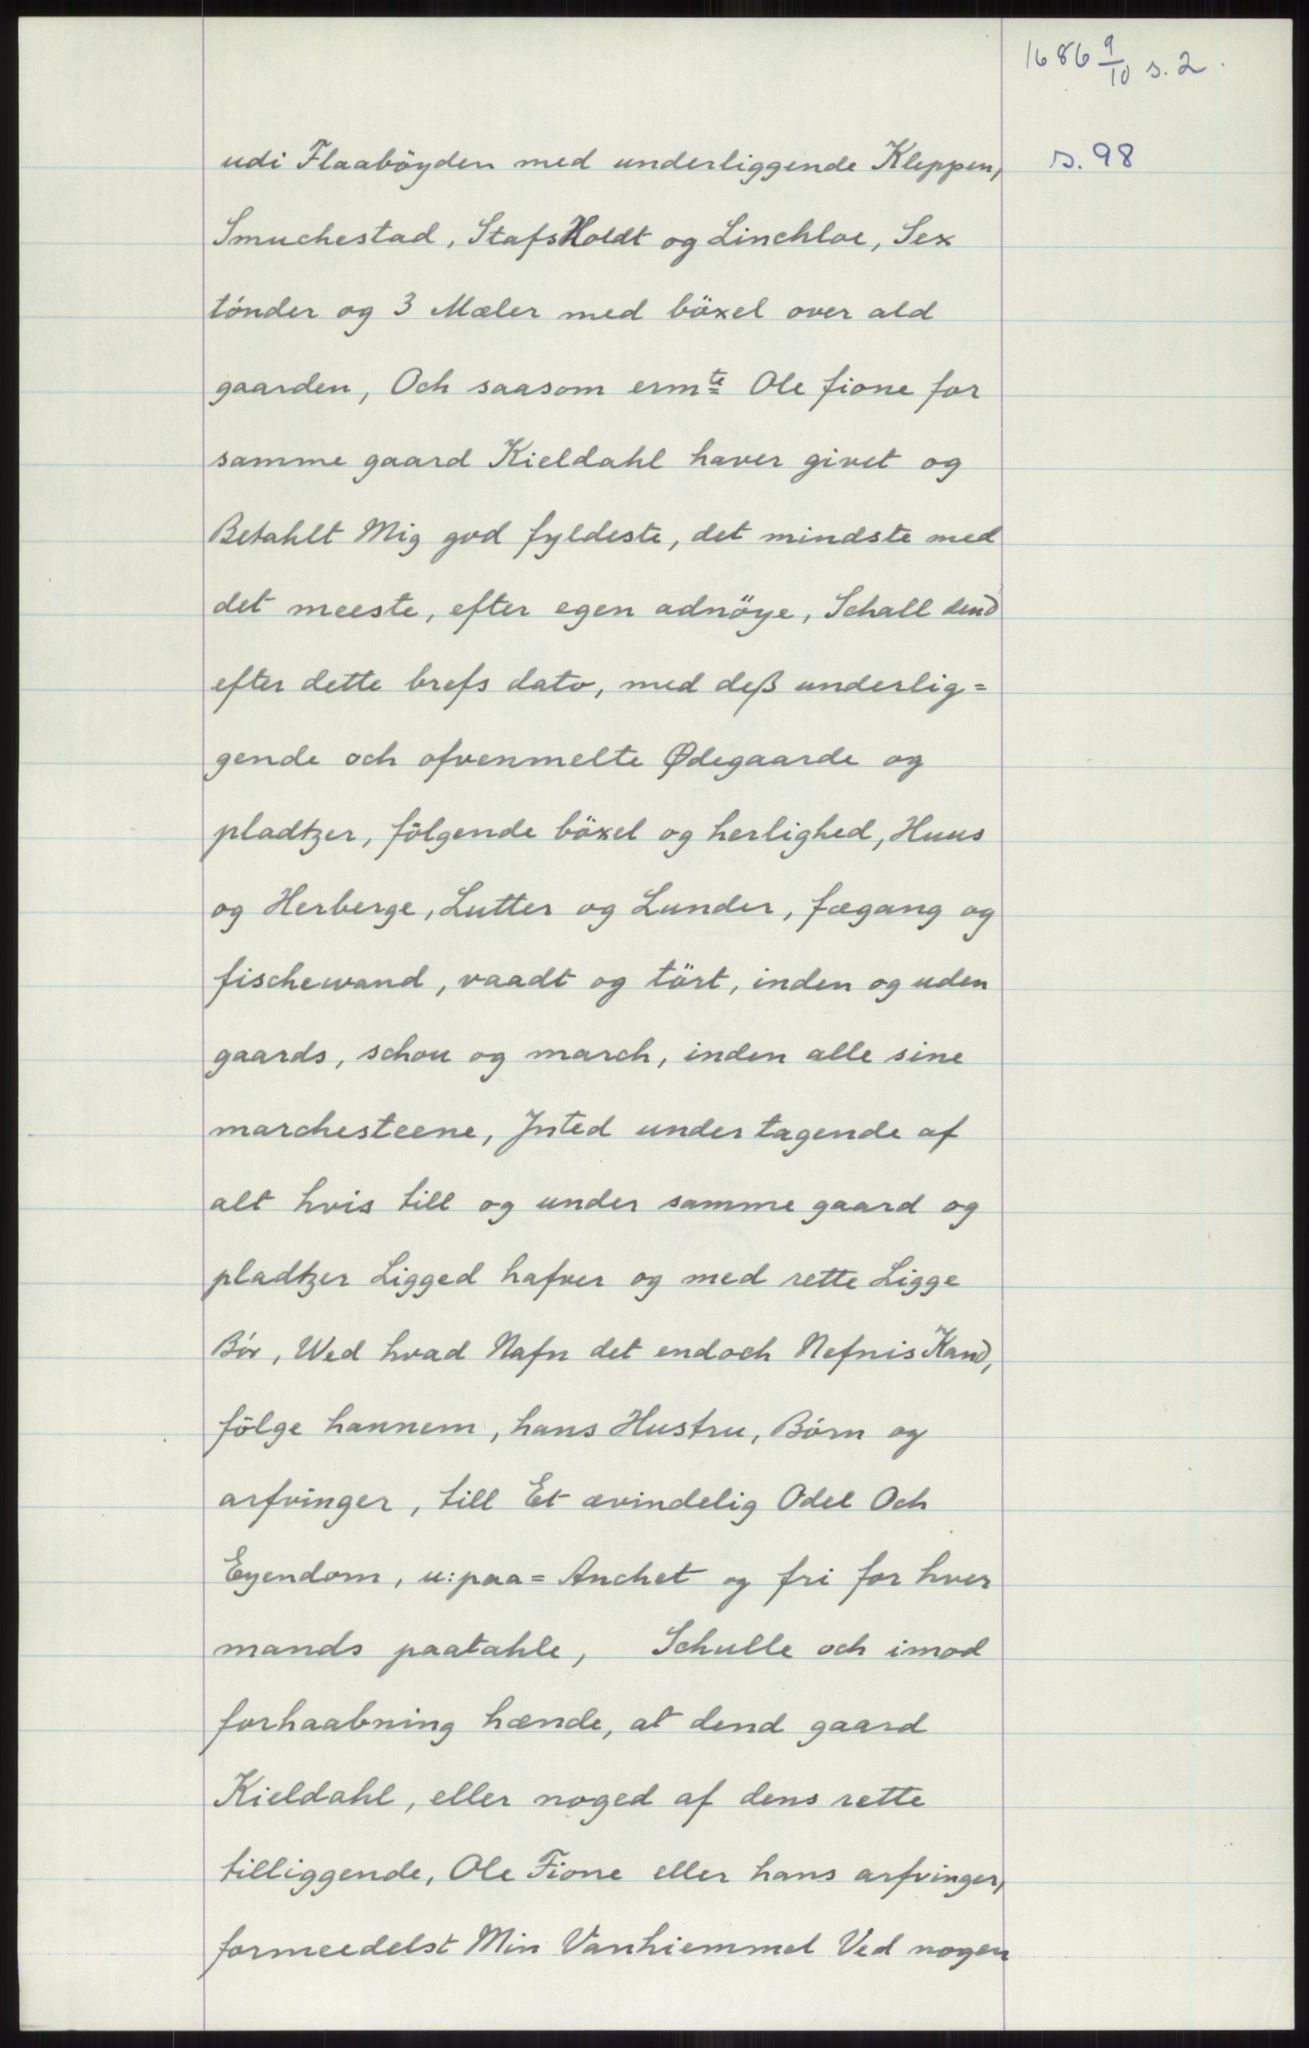 1686 9/10 s. 2.
udi Flaaböyden med underliggende Kleppen, s. 98
Smuchestad, StafsHoldt og Linchloe, Sex
tónder og 3 Mæler med böxel over ald
gaarden, Och saasom erm<sup>te</sup> Ole fione for
samme gaard Kieldahl haver givet og
Betahlt Mig god fyldeste, det mindste med
det meeste, efter egen adnöye, Schall dend
efter dette brefs dato, med deß underlig=
gende och ofvenmelte Ødegaarde og
pladtzer, fölgende böxel og herlighed, Huus
og Herberge, Lutter og Lunder, fægang og
fischewand, vaadt og tört, inden og uden
gaards, schou og march, inden alle sine
marchesteene, Jnted undertagende af
alt hvis till og under samme gaard og
pladtzer Ligged hafver og med rette Ligge
Bör, Wed hvad Nafn det endoch Nefnis Kand,
fölge hannem, hans Hustru, Börn og
arfvinger, till Et ævindelig Odel Och
Eyendom, u:paa=Anchet og fri for hver
mands paatahle, Schulle och imod
forhaabning hænde, at dend gaard
Kieldahl, eller noged af dens rette
tilliggende, Ole Fione eller hans arfvinger,
formeedelst Min Vanhiemmel Ved nogen